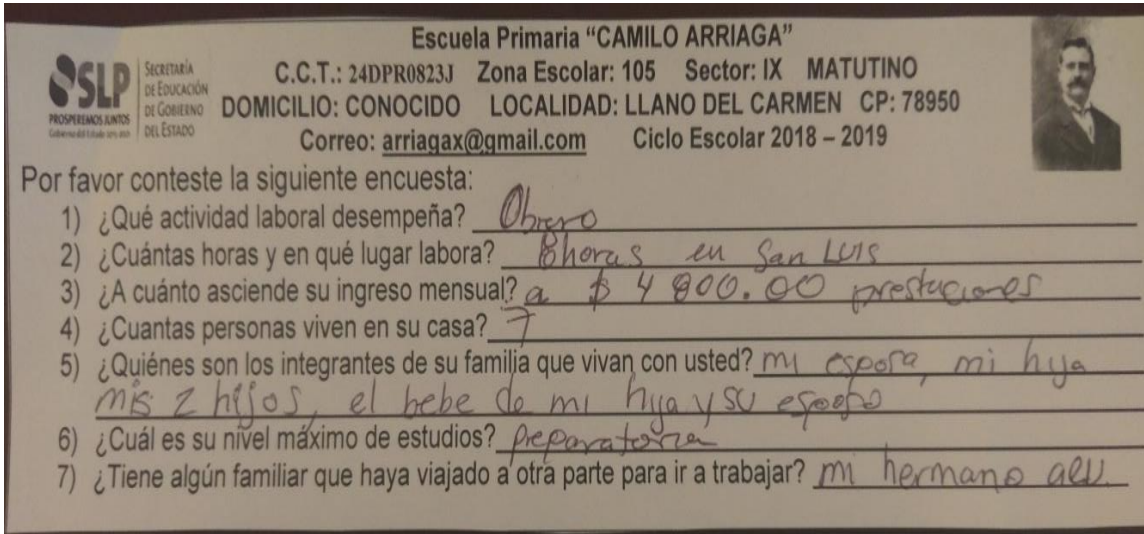 Escuela Primaria “CAMILO ARRIAGA”
SLP
PROSPEREMOS JUNTOS
SECRETARÍA
DE EDUCACIÓN
DE GOBIERNO
DEL ESTADO
C.C.T.: 24DPR0823J Zona Escolar: 105 Sector: IX MATUTINO
DOMICILIO: CONOCIDO LOCALIDAD: LLANO DEL CARMEN CP: 78950
Correo: arriagax@gmail.com Ciclo Escolar 2018 – 2019
Por favor conteste la siguiente encuesta:
1) ¿Qué actividad laboral desempeña? Obrero
2) ¿Cuántas horas y en qué lugar labora? 8horas en San LUIS
3) ¿A cuánto asciende su ingreso mensual? a $ 4 800.00 prestaciones
4) ¿Cuantas personas viven en su casa? 7
5) ¿Quiénes son los integrantes de su familia que vivan con usted? mi esposa, mi hija
mis 2 hijos, el bebe de mi hija y su esposo
6) ¿Cuál es su nivel máximo de estudios? preparatoria
7) ¿Tiene algún familiar que haya viajado a otra parte para ir a trabajar? mi hermano